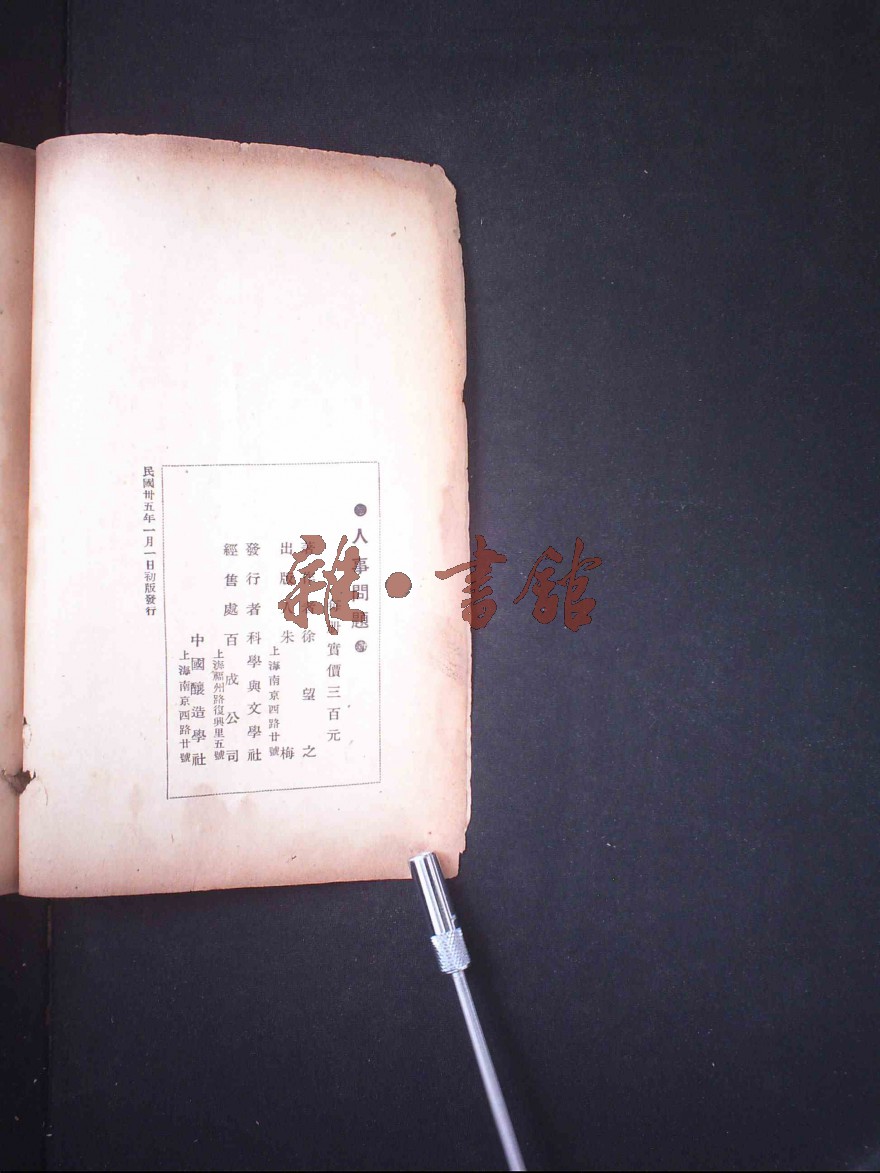 人事問題
每冊實價三百元
著作者徐望之
出版人朱梅
上海南京西路廿號
發行者科學與文學社
經售處百成公司
上海福州路復興里五號
中國釀造學社
上海南京西路廿號
民國卅五年一月一日初版發行
雜·書館